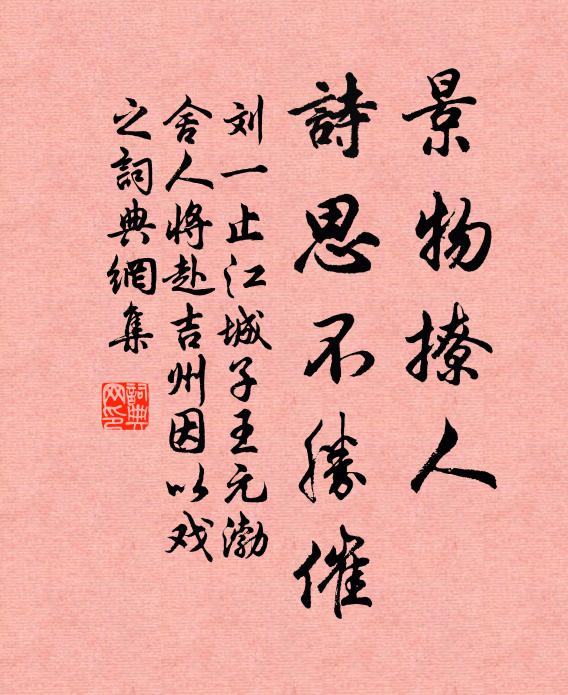 景物撩人
詩思不勝催
刘一止江城子王元渤
舍人将赴吉州因以戏
之詞典網集
詞典
网印